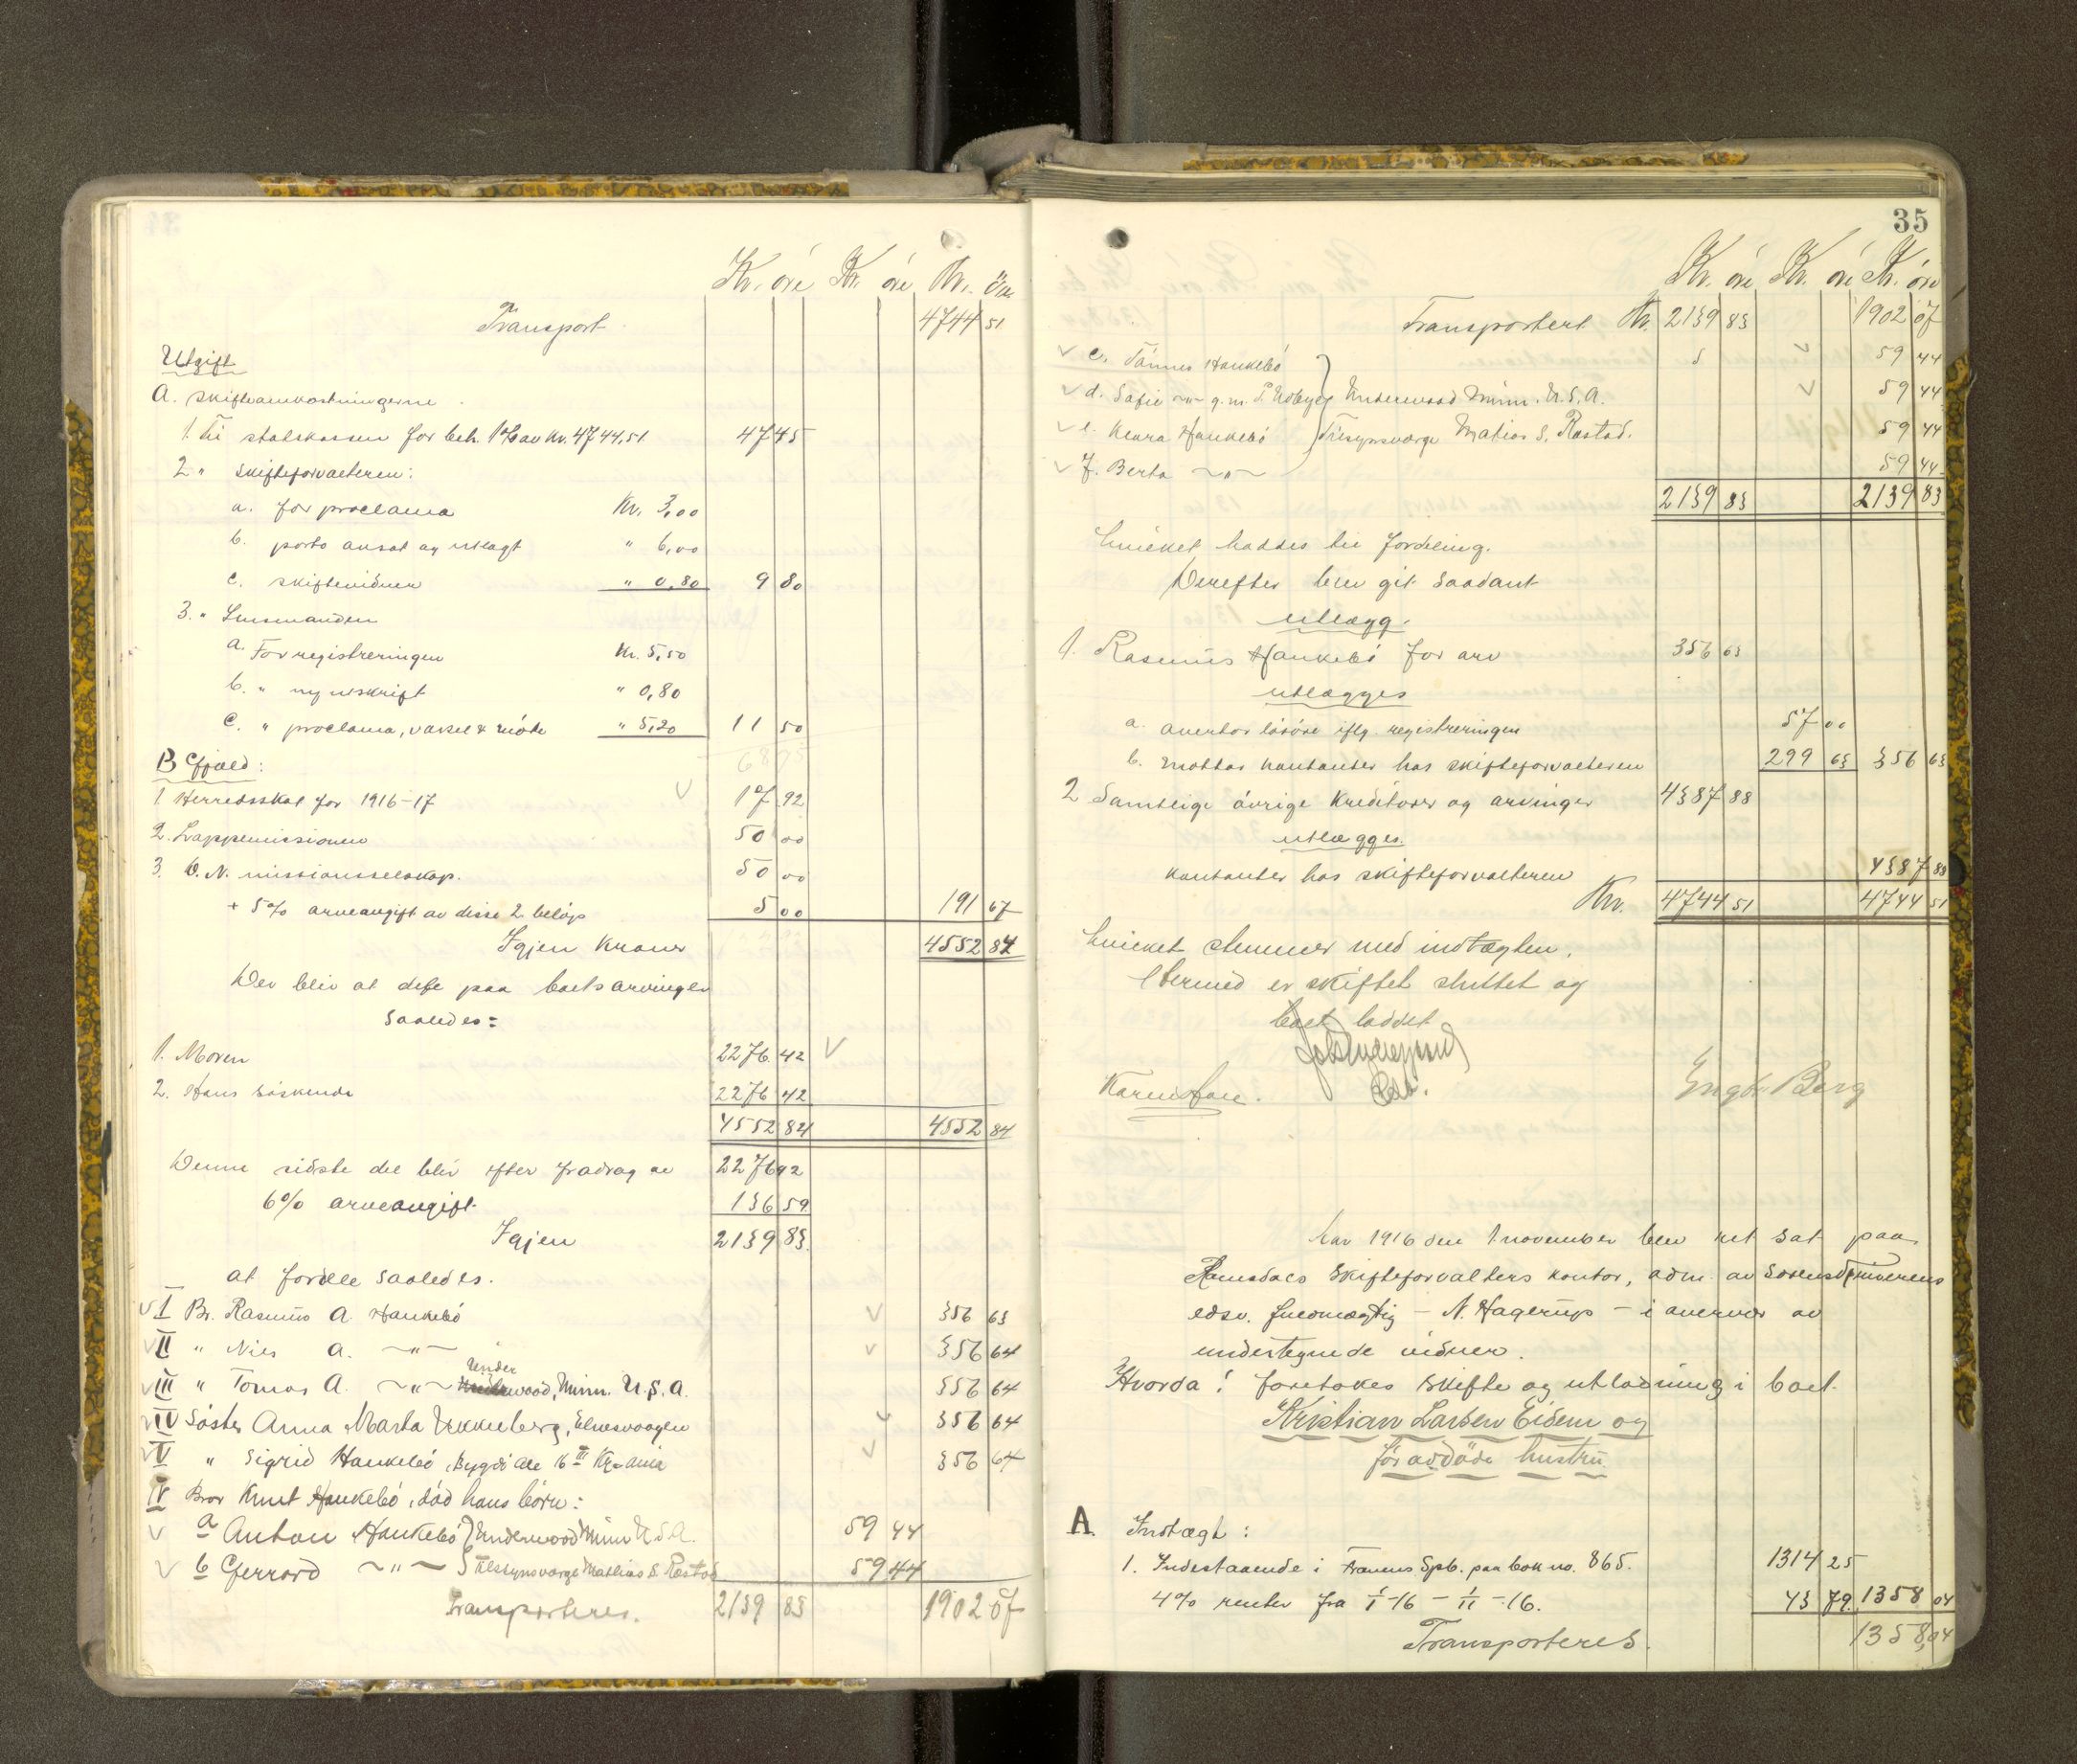 Kr. öre Kr. öre Kr. öre
Transport 4744 51
Utgift
A. Skifteomkostningerne
1. Til statskassen for beh. 1% av Kr. 4744,51 47 45
2 " skifteforvalteren:
a. for proclama Kr. 3,00
b. porto ansat og utlagt " 6,00
c. skiftevidner " 0,80 9 80
3. " Lensmanden
a. For registreringen Kr. 5,50
b. " utskrift " 0,80
c. " proclama, varsel & möte " 5,20 11 50
68 75
B Gjæld:
1 Herredsskat for 1916-17 17 92
2. Lappemissionen 50 00
3. D. N. missionsselskap. 50 00
+ 5% arveavgift av disse 2 belöp 5 00 191 67
Igjen Kroner 4552 84
Der blir at dele paa boets arvinger
saaledes:
1. Moren 2276 42
2. Hans söskende 2276 42
4552 84 4552 84
Denne sidste del blir efter fradrag av 2276 42
6% arveavgift 136 59
Igjen 2139 83
at fordele saaledes.
I Br. Rasmus A. Haukebö 356 63
II " Nils A. —"— 356 64
III " Tomas A. —"— Underwood, Minn. U.S.A. 356 64
IV Söster Anna Marta Ukkelberg, Elnesvaagen 356 64
V " Sigrid Haukebö, Bygdö Alle 16 III Kr.ania 356 64
IV Bror Knut Haukebö, död hans börn:
a Anton Haukebö } Underwood Minn U.S.A. 59 44
b Gerrard —"— } Tilsynsværge Mathias S. Røstad 59 44
Transporteres. 2139 83 1902 07
35
Kr. öre Kr. öre Kr. öre
Transportert Kr. 2139 83 1902 07
c. Tönnes Haukebö 59 44
d. Sofie —"— g.m. Underwood Minn. U.S.A. 59 44
e. Klara Haukebö Tilsynsværge Matias S. Røstad. 59 44
f. Berta —"— 59 44
2139 83 2139 83
hvilket haddes til fordeling.
Derefter blev git saadant
utlægg.
1. Rasmus Haukebö for arv 356 63
utlægges
a. overtar lösöre iflg. registreringen 57 00
b. mottar kontanter hos skifteforvalteren 299 63 356 63
2 Samtlige övrige kreditorer og arvinger 4387 88
utlægges.
kontanter hos skifteforvalteren 4387 88
Kr. 4744 51 4744 51
hvilket stemmer med indtægten.
Hermed er skiftet sluttet og
boet laddet
Engb. Berg
Aar 1916 den 1 november blev ret sat paa
Romsdals Skifteforvalters kontor, adm. av Sorenskriverens
edsv. fuldmægtig – N. Hagerup – i overvær av
undertegnede vidner.
Hvorda: foretokes skifte og utlodning i boet.
Kristian Larsen Eidem og
før avdöde hustru
A. Indtægt:
1. Indestaaende i Frænens Spb. paa bok no. 865. 1314 25
4% renter fra 1/1-16 – 1/11-16. 43 79 1358 04
Transporteres. 1358,04